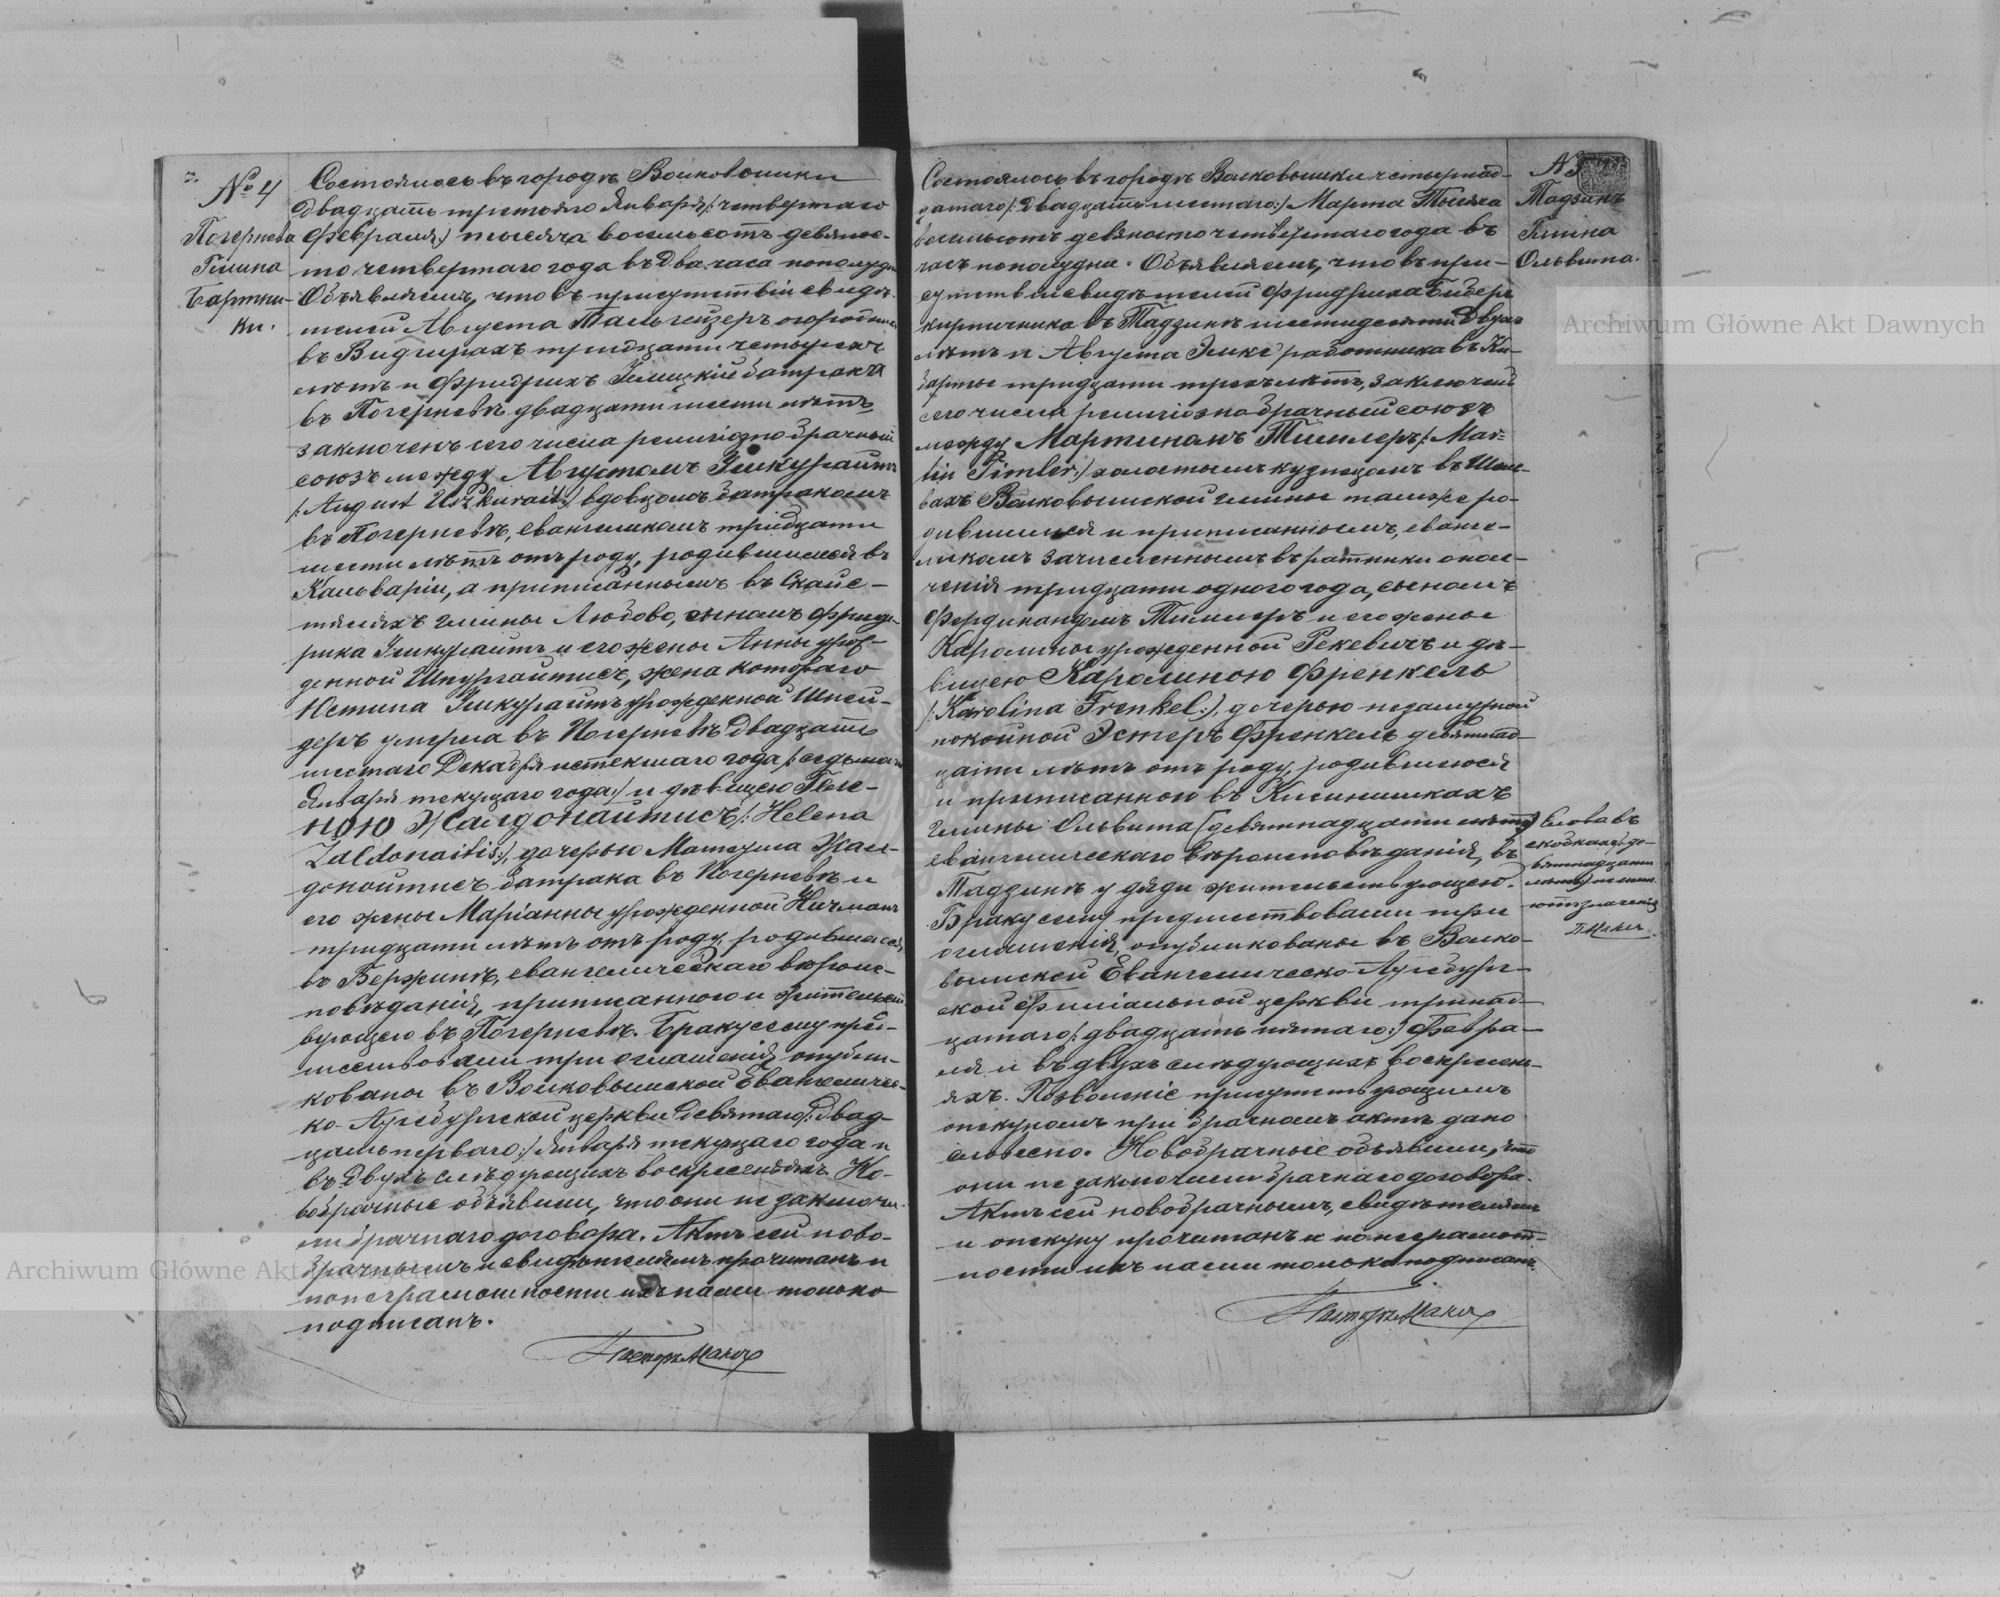 № 4
Погернева
Гмина
Бартни-
ки.
Состоялось въ городѣ Волковышки
двадцать третьяго Января /: четвертаго
Февраля :/ тысяча восемьсотъ девянос-
то четвертаго года въ два часа пополудни
Объявляемъ, что въ присутствіи свидѣ-
телей Августа Тальгейзеръ огородника
въ Видгирахъ тридцати четырехъ
лѣтъ и Фридрихъ батрака
въ Погерневѣ двадцати шести лѣтъ
заключенъ сего числа религіозно брачный
союзъ между Августомъ Ушкурайтъ
/: August Uszkurait :/ вдовцомъ батракомъ
въ Погерневѣ, евангеликомъ тридцати
шести лѣтъ отъ роду, родившимся въ
Кальваріи, а приписаннымъ въ Скайс-
теляхъ гмины Любово, сыномъ Фриде-
рика Ушкурайтъ и его жены Анны урож-
денной Шпургайтисъ, жена котораго
Юстина Ушкурайтъ урожденной Шней-
деръ умерла въ Погерневѣ двадцать
шестаго Декабря истекшаго года /: седьмаго
Января текущаго года :/ и дѣвицею Геле-
ною Жалдонайтисъ /: Helena
Żaldonaitis :/, дочерью Матеуша Жал-
донайтисъ батрака въ Погерневѣ и
его жены Маріанны урожденной Ничманъ
тридцати лѣтъ отъ роду, родившаяся
въ Вержинѣ, евангелическаго вѣроис-
повѣданія, приписанною и жительст-
вующею въ Погерневѣ. Браку сему пред-
шествовали три оглашенія, опубли-
кованы въ Волковышской Евангеличес-
ко-Аугсбургской церкви девятаго /: двад-
цать перваго :/ Января текущаго года и
въ двухъ слѣдующихъ воскресеньяхъ. Но-
вобрачные объявили, что они не заключи-
ли брачнаго договора. Актъ сей ново-
брачнымъ и свидѣтелямъ прочитанъ и
по неграмотности ихъ нами только
подписанъ.
Пасторъ
№ 5
Тадзинъ
Гмина
Ольвита.
Состоялось въ городѣ Волковышки четырнад-
цатаго /: двадцать шестаго :/ Марта Тысяча
восемьсотъ девяносто четвертаго года въ
часъ пополудни. Объявляемъ, что въ при-
сутствіи свидѣтелей Фридриха Бидеръ
кирпичника въ Тадзинѣ шестидесяти двухъ
лѣтъ и Августа Эмке работника въ Ки-
барты тридцати трехъ лѣтъ, заключенъ
сего числа религіозно брачный союзъ
между Мартиномъ Тимлеръ /: Mar-
tin Timler :/ холостымъ кузнецомъ въ Шел-
вахъ Волковышской гмины тамже ро-
дившимся и приписаннымъ, еванге-
ликомъ зачисленнымъ въ ратники опол-
ченія тридцати одного года, сыномъ
Фердинандомъ Тимлеръ и его жены
Каролины урожденной Рекевичъ и дѣ-
вицею Каролиною Френкель
/: Karolina Frenkel :/, дочерью незамужной
покойной Эстеръ Френкель девятнад-
цати лѣтъ отъ роду, родившеюся
и приписанной въ Кисинишкахъ
Гмины Ольвита (девятнадцати лѣтъ)
евангелическаго вѣроисповѣданія, въ
Тадзинѣ у дяди жительствующею.
Браку сему предшествовали три
оглашенія, опубликованы въ Волко-
вышской Евангелическо-Аугсбург-
ской Филіальной церкви тринад-
цатаго /: двадцать пятаго :/ Февра-
ля и въ двухъ слѣдующихъ воскресень-
яхъ. Позволеніе присутствующимъ
опекуномъ при брачномъ актѣ дано
словесно. Новобрачные объявили, что
они не заключили брачнаго договора.
Актъ сей новобрачнымъ, свидѣтелямъ
и опекуну прочитанъ и по неграмот-
ности ихъ нами только подписанъ.
Пасторъ
Слова въ
скобкахъ /: де-
вятнадцати
лѣтъ :/ не им-
ютъ значенія
Archiwum Główne Akt Dawnych
Archiwum Główne Akt Dawnych